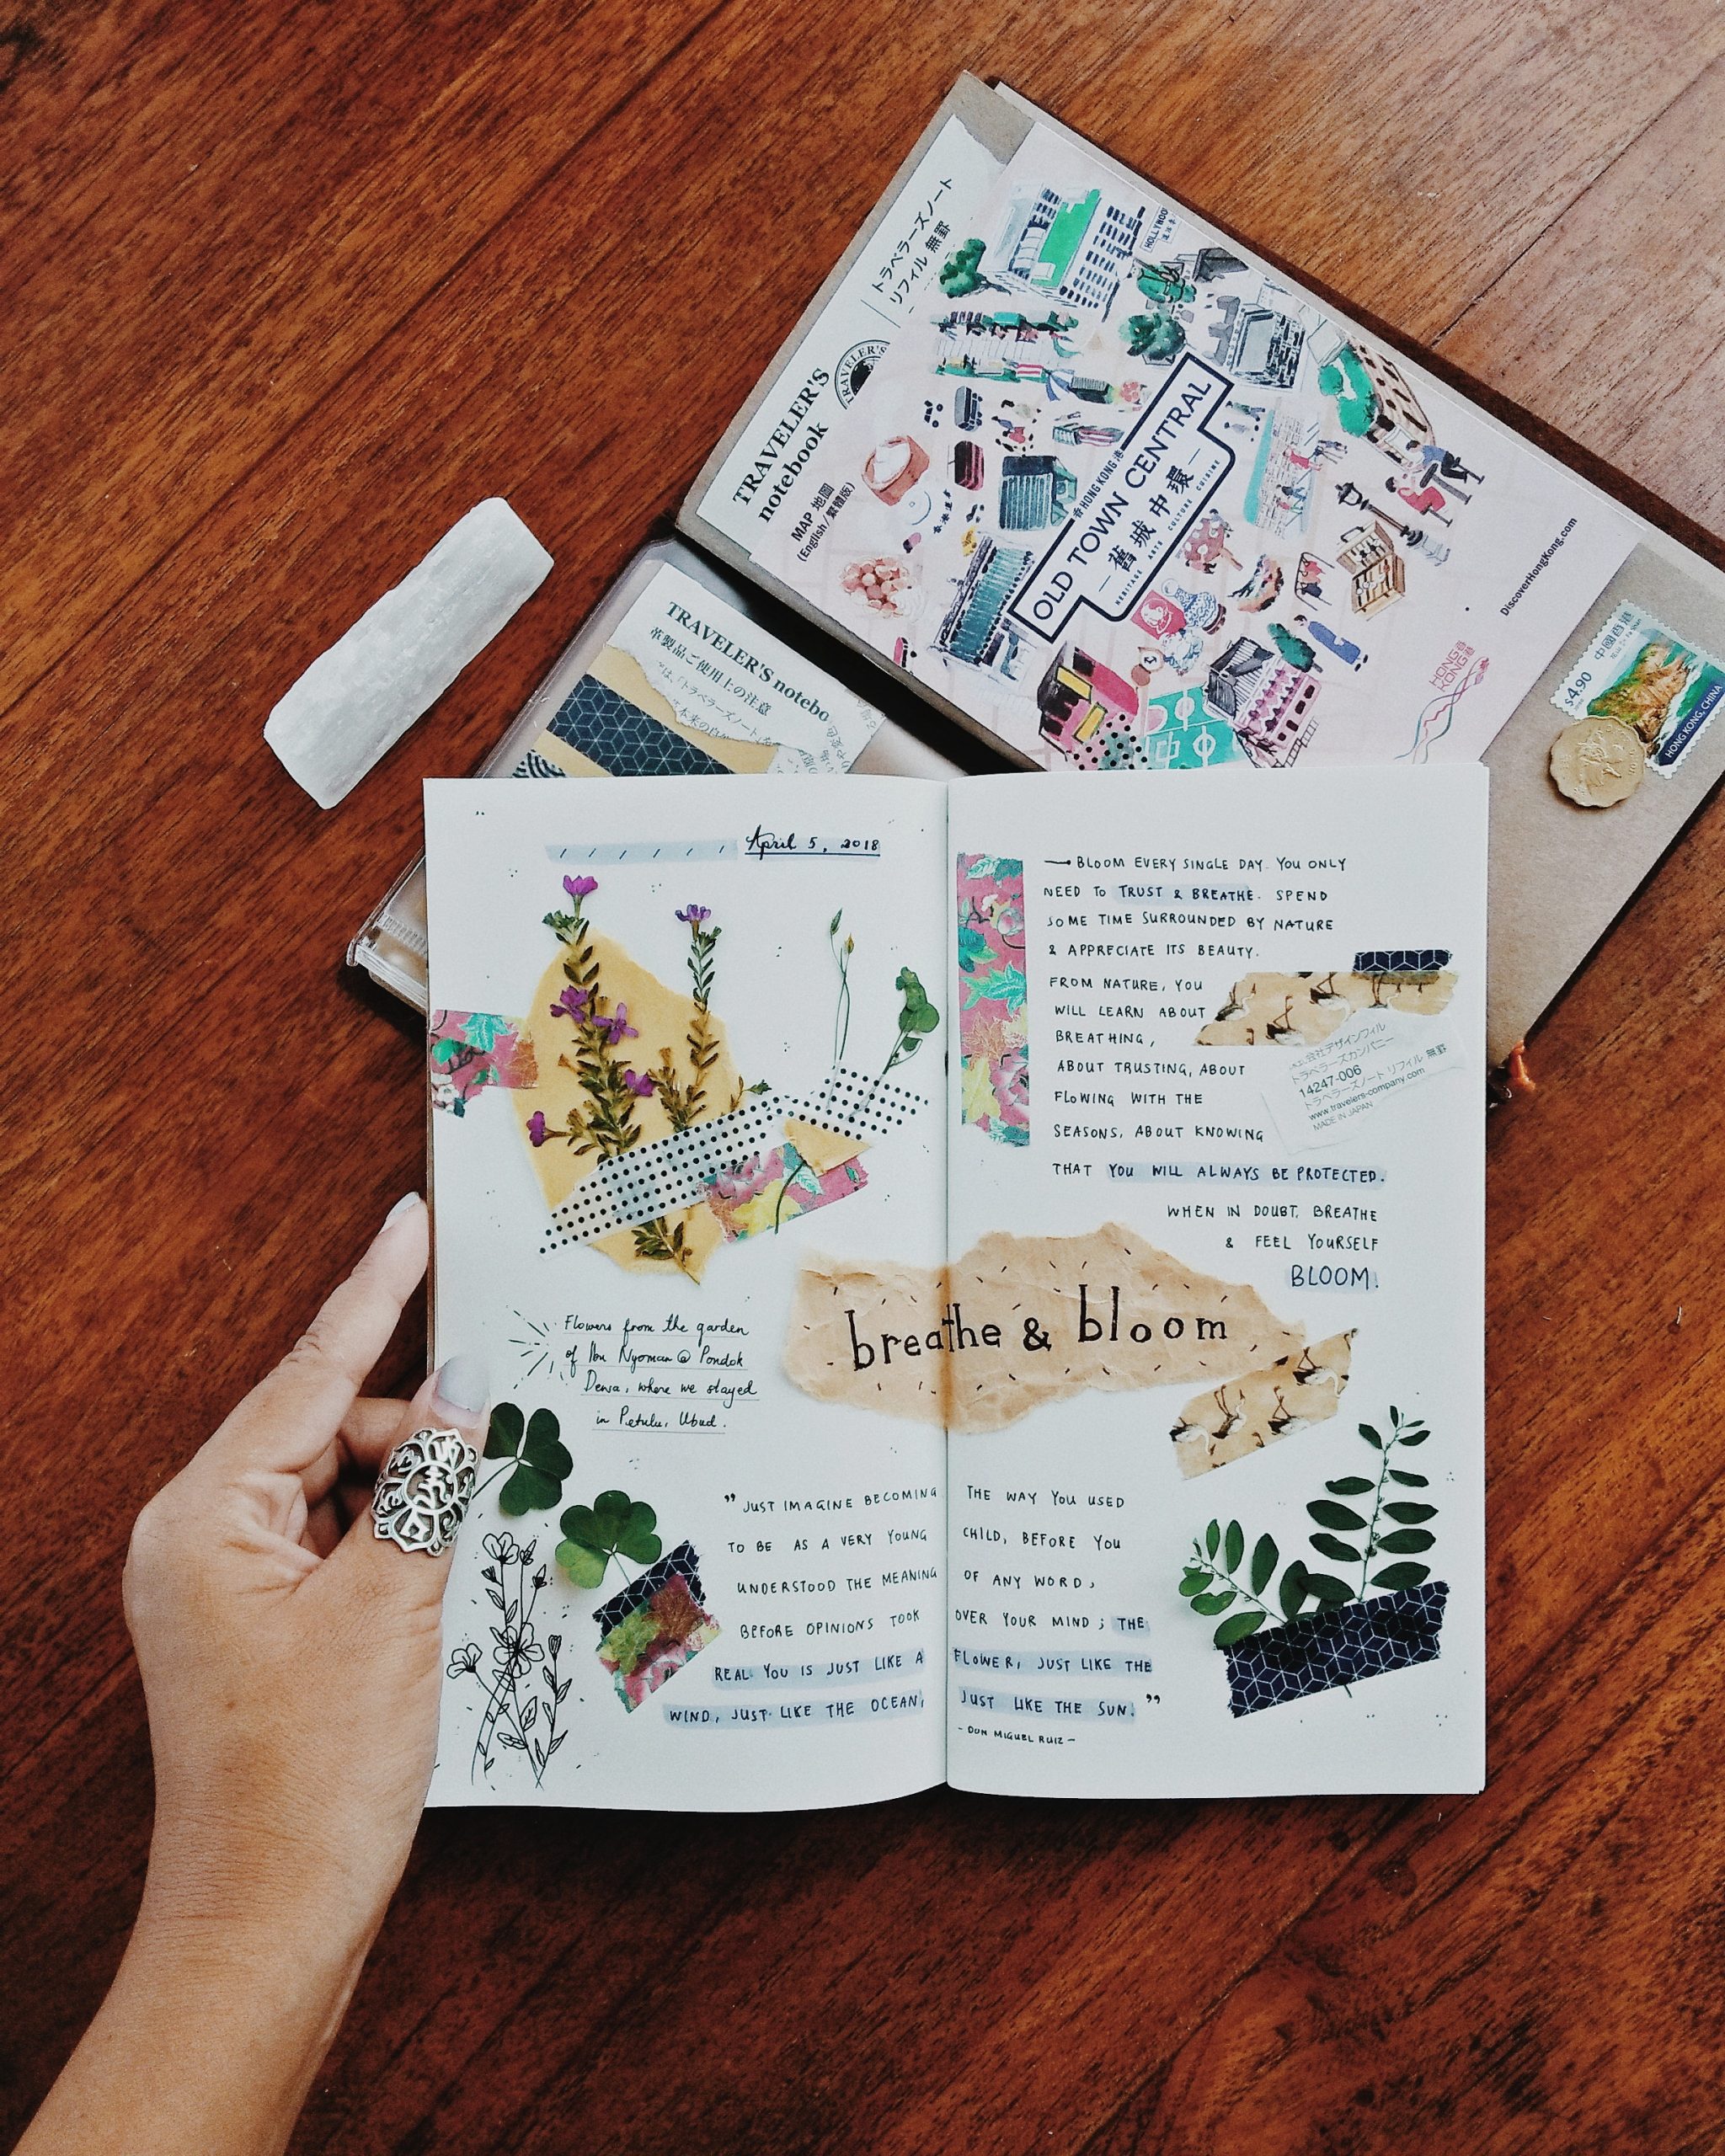 TRAVELER'S
notebook
トラベラーズノート
リフィル 無罫
TRAVELER'S
MAP 地圖
(English / 繁體版)
HOLLYWOOD
香 HONG KONG 港
OLD TOWN CENTRAL
— 舊城中環 —
HERITAGE ARTS CULTURE CUISINE
香港進
DiscoverHongKong.com
HONG KONG 香港
中國香港
$4.90
HONG KONG, CHINA
TRAVELER'S notebo
革製品ご使用上の注意
は、「トラベラーズノート」
April 5, 2018
Flowers from the garden
of Ibu Nyoman @ Pondok
Dewa, where we stayed
in Petulu, Ubud.
BLOOM EVERY SINGLE DAY. YOU ONLY
NEED TO TRUST & BREATHE. SPEND
SOME TIME SURROUNDED BY NATURE
& APPRECIATE ITS BEAUTY.
FROM NATURE, YOU
WILL LEARN ABOUT
BREATHING,
ABOUT TRUSTING, ABOUT
FLOWING WITH THE
SEASONS, ABOUT KNOWING
THAT YOU WILL ALWAYS BE PROTECTED.
WHEN IN DOUBT, BREATHE
& FEEL YOURSELF
BLOOM.
会社デザインフィル
トラベラーズカンパニー
14247-006
トラベラーズノート リフィル 無罫
www.travelers-company.com
MADE IN JAPAN
breathe & bloom
"JUST IMAGINE BECOMING THE WAY YOU USED
TO BE AS A VERY YOUNG CHILD, BEFORE YOU
UNDERSTOOD THE MEANING OF ANY WORD,
BEFORE OPINIONS TOOK OVER YOUR MIND; THE
REAL YOU IS JUST LIKE A FLOWER, JUST LIKE THE
WIND, JUST LIKE THE OCEAN, JUST LIKE THE SUN."
- DON MIGUEL RUIZ -